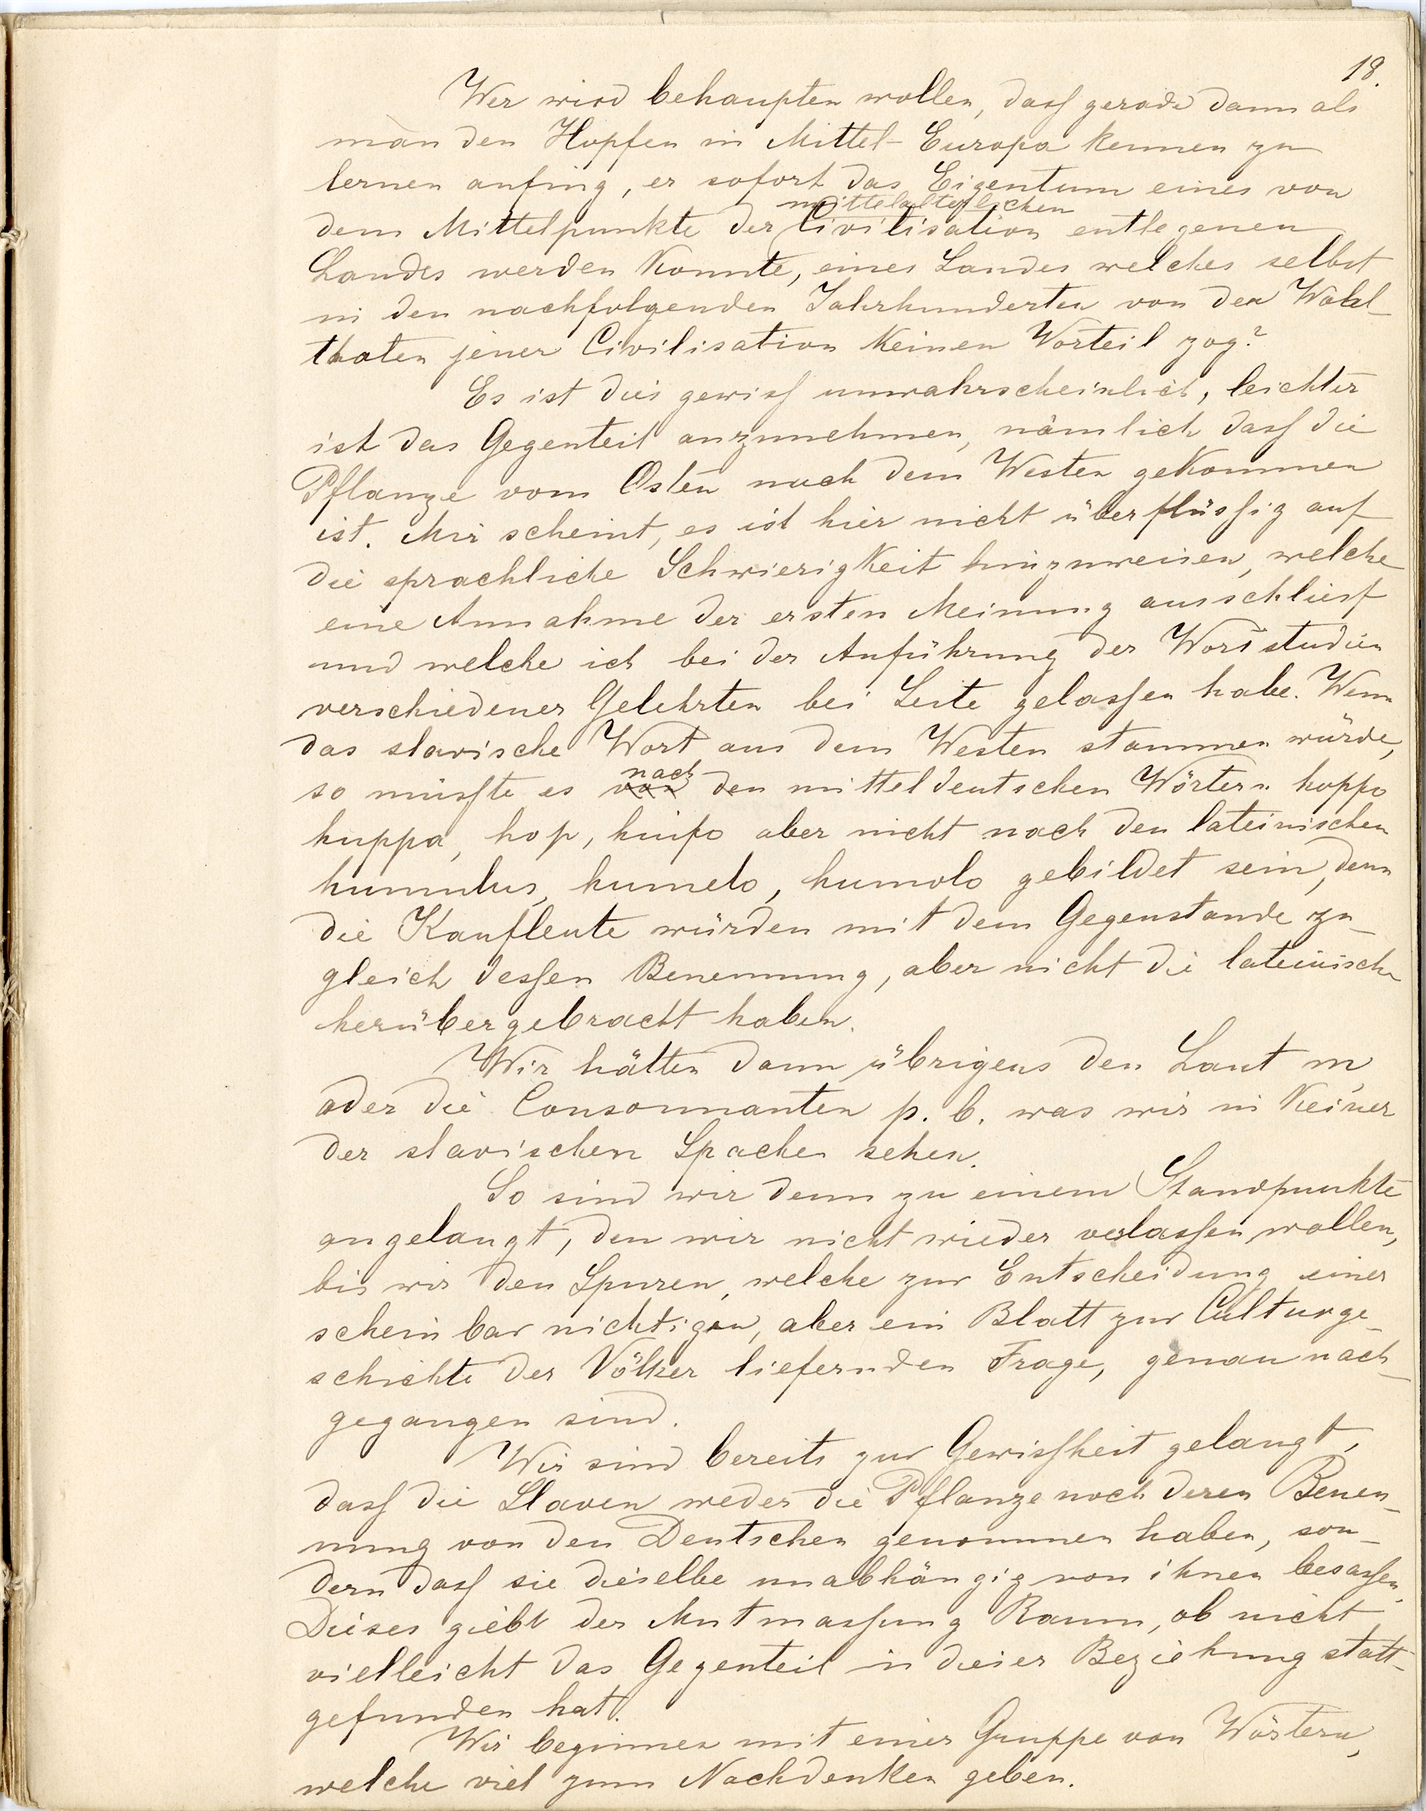 18.
Wer wird behaupten wollen, dass gerade dann als
man den Hopfen in Mittel-Europa kennen zu
lernen anfing, er sofort das Eigentum eines von
mittelalterlichen
dem Mittelpunkte der Civilisation entlegenen
Landes werden konnte, eines Landes welches selbst
in den nachfolgenden Jahrhunderten von den Wohl-
thaten jener Civilisation keinen Vorteil zog?
Es ist dies gewiss unwahrscheinlich, leichter
ist das Gegenteil anzunehmen, nämlich dass die
Pflanze vom Osten nach dem Westen gekommen
ist. Mir scheint, es ist hier nicht überflüssig auf
die sprachliche Schwierigkeit hinzuweisen, welche
eine Annahme der ersten Meinung ausschliesst
und welche ich bei der Anführung der Wortstudien
verschiedener Gelehrten bei Seite gelassen habe. Wenn
das slavische Wort aus dem Westen stammen würde,
nach
so müsste es von den mitteldeutschen Wörtern hoppo
huppa, hop, hupfo aber nicht nach den lateinischen
humulus, humelo, humolo gebildet sein, denn
die Kaufleute würden mit dem Gegenstande zu-
gleich dessen Benennung, aber nicht die lateinische
herübergebracht haben.
Wir hätten dann übrigens den Laut m
oder die Consonnanten p. b. was wir in keiner
der slavischen Spachen sehen.
So sind wir denn zu einem Standpunkte
angelangt, den wir nicht wieder verlassen wollen,
bis wir den Spuren, welche zur Entscheidung einer
scheinbar nichtigen, aber ein Blatt zur Culturge-
schichte der Völker liefernden Frage, genau nach-
gegangen sind.
Wir sind bereits zur Gewissheit gelangt,
dass die Slaven weder die Pflanze noch deren Benen-
nung von den Deutschen genommen haben, son-
dern dass sie dieselbe unabhängig von ihnen besassen.
Dieses giebt der Mutmassung Raum, ob nicht
vielleicht das Gegenteil in dieser Beziehung statt-
gefunden hat.
Wir beginnen mit einer Gruppe von Wörtern,
welche viel zum Nachdenken geben.